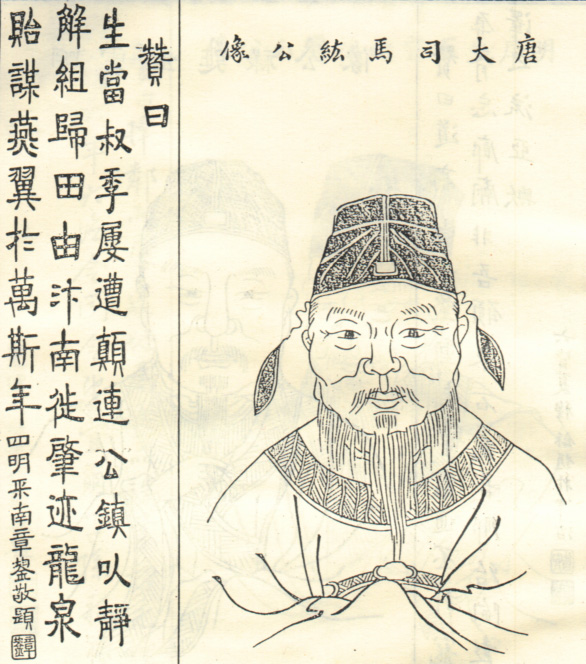 唐大司馬紘公像
贊曰
生當叔季屢遭顛連公鎮以靜
解組歸田由汴南徙肇迹龍泉
貽謀燕翼於萬斯年四明采南章鋆敬題